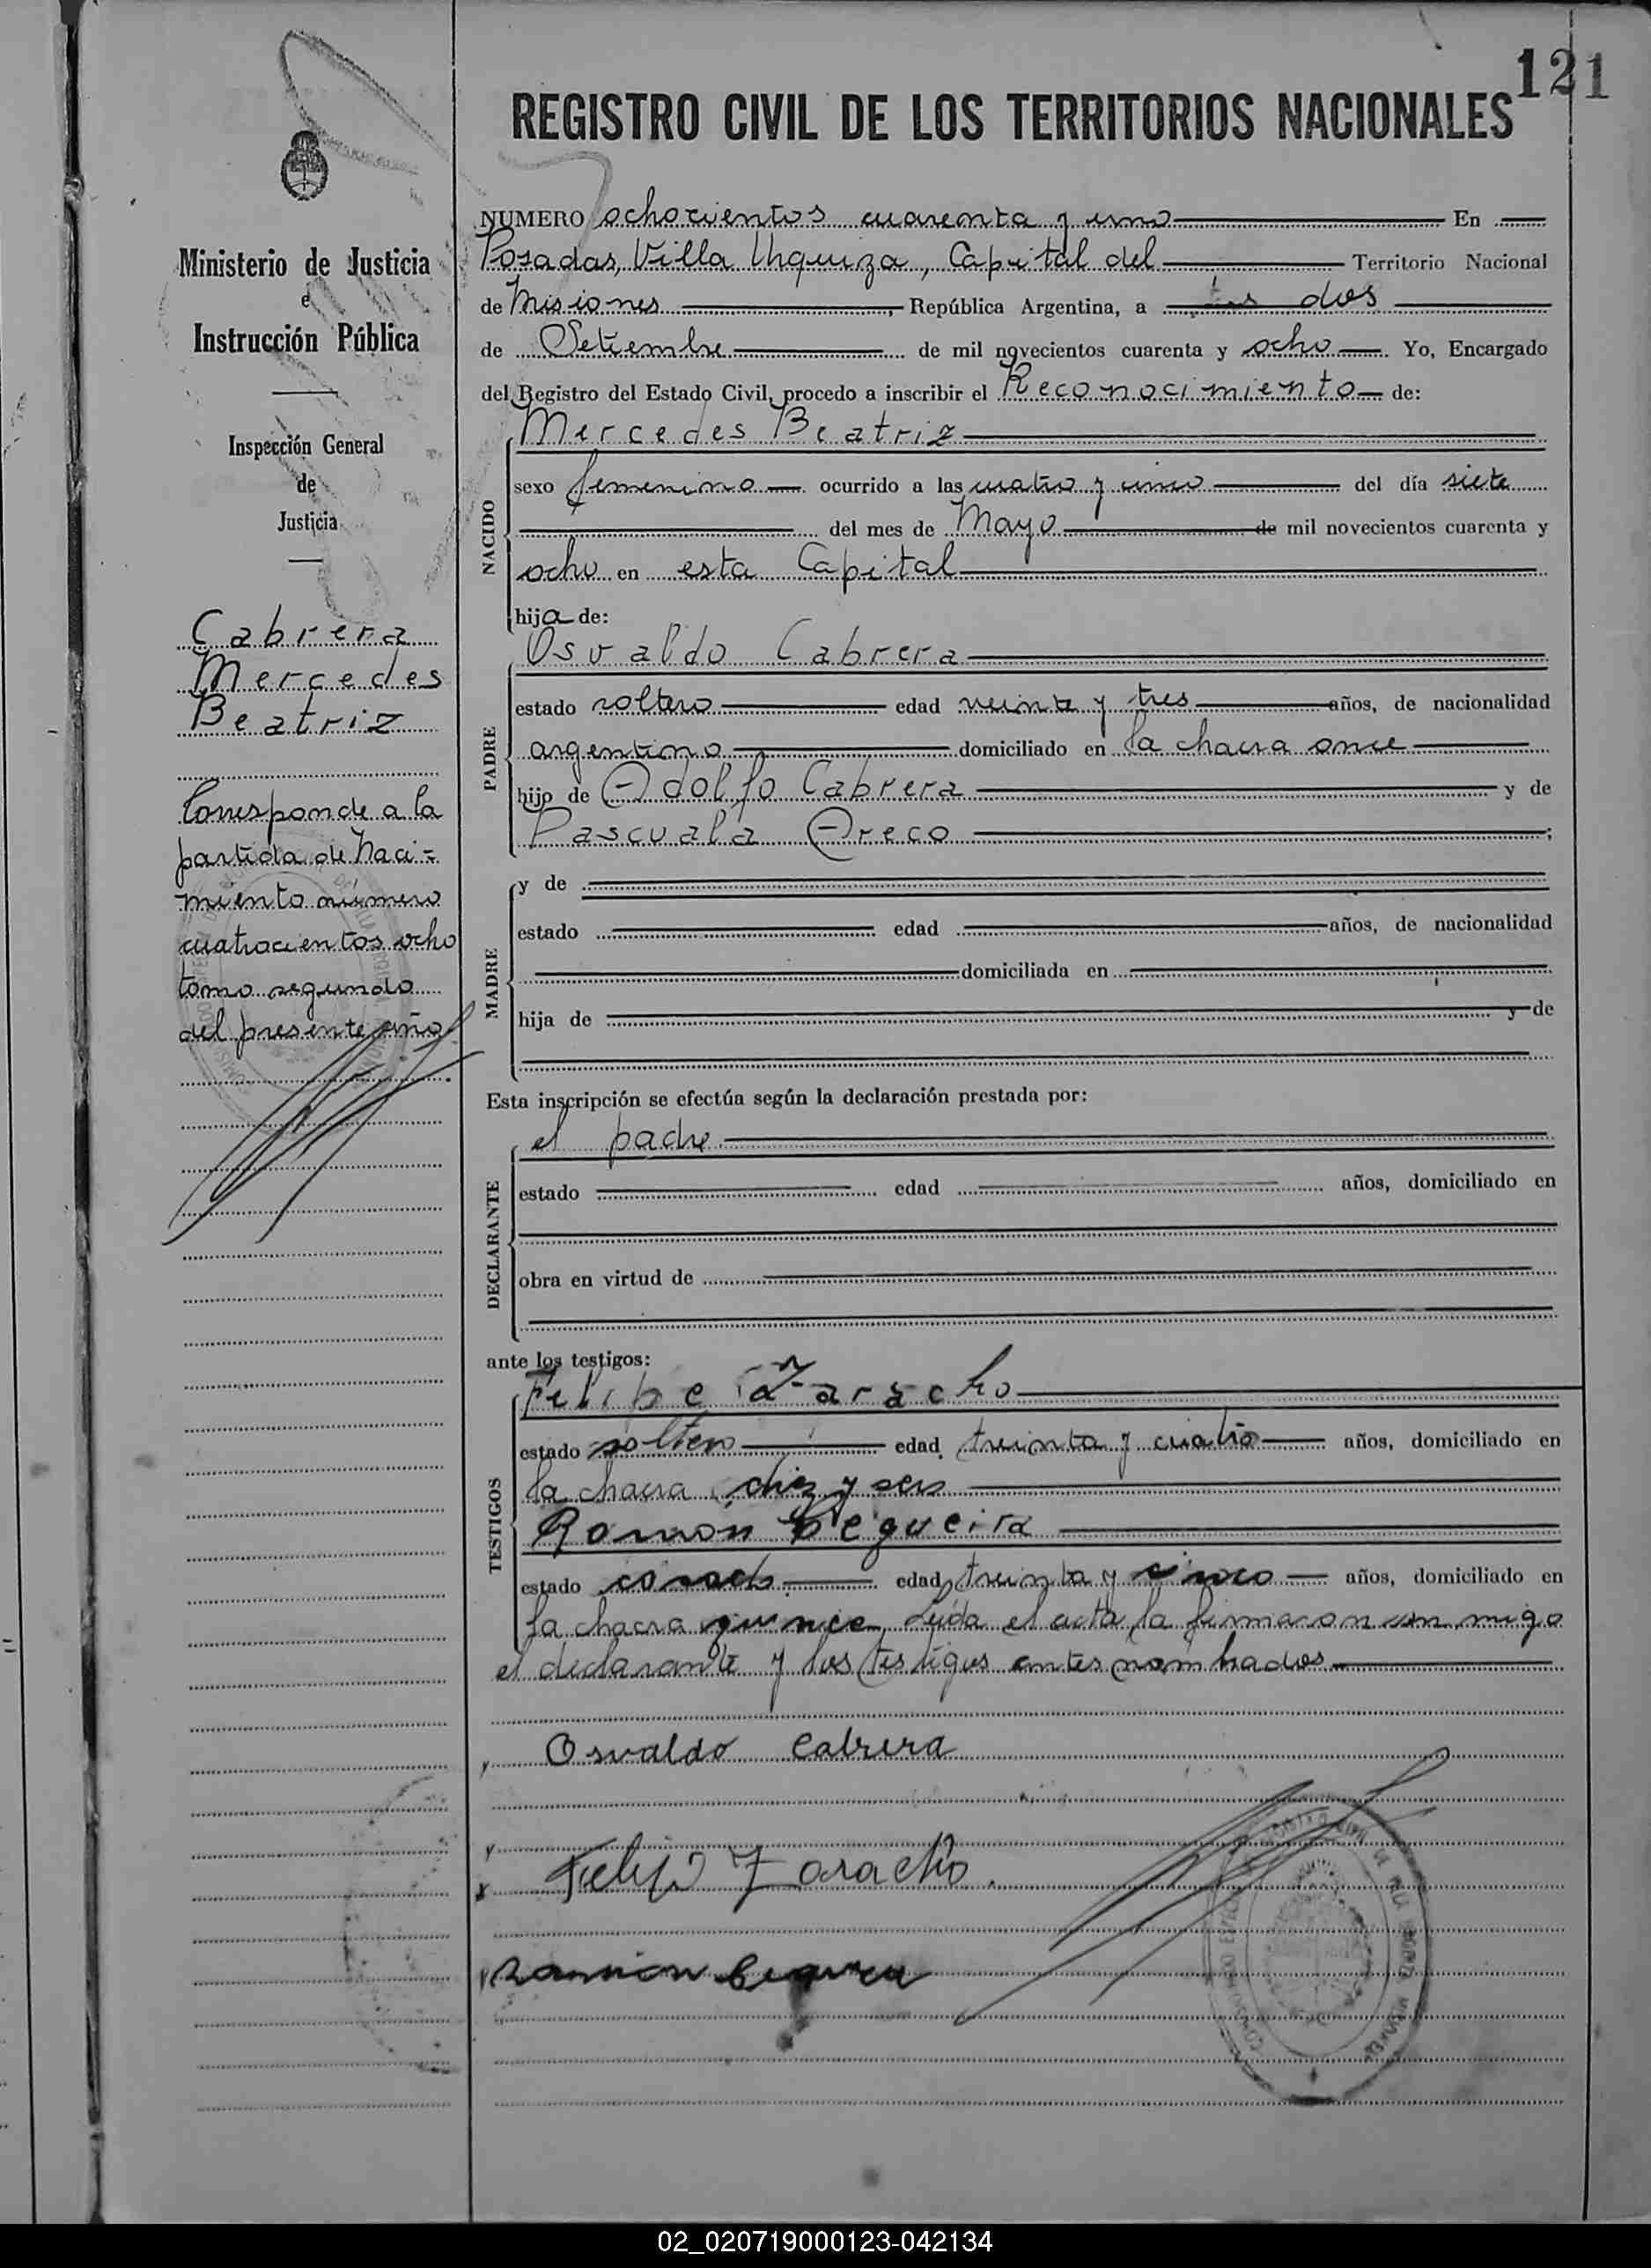 121
REGISTRO CIVIL DE LOS TERRITORIOS NACIONALES
Ministerio de Justicia
e
Instrucción Pública
Inspección General
de
Justicia
Cabrera
Mercedes
Beatriz
Corresponde a la
partida de Naci-
miento número
cuatrocientos ocho
tomo segundo
del presente año
NUMERO ochocientos cuarenta y uno En
Posadas, Villa Urquiza, Capital del Territorio Nacional
de Misiones, República Argentina, a los dos
de Setiembre de mil novecientos cuarenta y ocho Yo, Encargado
del Registro del Estado Civil, procedo a inscribir el Reconocimiento de:
NACIDO
Mercedes Beatriz
sexo femenino ocurrido a las cuatro y cinco del día siete
del mes de Mayo de mil novecientos cuarenta y
ocho en esta Capital
hija de:
PADRE
Osvaldo Cabrera
estado soltero edad veinte y tres años, de nacionalidad
argentino domiciliado en la chacra once
hijo de Adolfo Cabrera y de
Pascuala Areco ;
MADRE
y de
estado edad años, de nacionalidad
domiciliada en
hija de y de
Esta inscripción se efectúa según la declaración prestada por:
DECLARANTE
el padre
estado edad años, domiciliado en
obra en virtud de
ante los testigos:
TESTIGOS
Felipe Zaracho
estado soltero edad treinta y cuatro años, domiciliado en
la chacra diez y seis
Ramón Segueira
estado casado edad treinta y cinco años, domiciliado en
la chacra quince Leída el acta la firmaron con migo
el declarante y los testigos antes nombrados
Osvaldo Cabrera
Felipe Zaracho.
Ramón
02_020719000123-042134